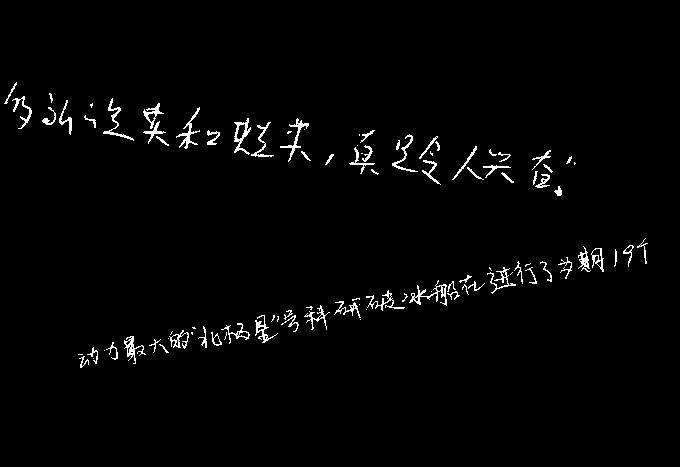 英和 来,真是令人兴奋。”
动力最大的“北极星”号科研破冰船在进行了为期19个